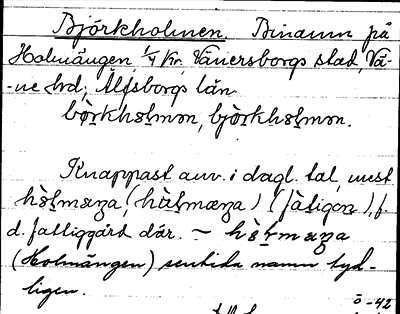 Björkholmen. Binamn på
Holmängen 1/4 kr, Vänersborgs stad, Vä-
-ne hd, Älfsborgs län
bò̤rkhɔlmən, bjò̤rkhɔlmən.
Knappast anv. i dagl. tal, mest
hɔ̀lmæŋa, (hàlmæŋa) (fàtigɑn), f.
d. fattiggård där. – hɔ̀lmæŋa
(Holmängen) sentida namn tyd-
ligen.
ö -42